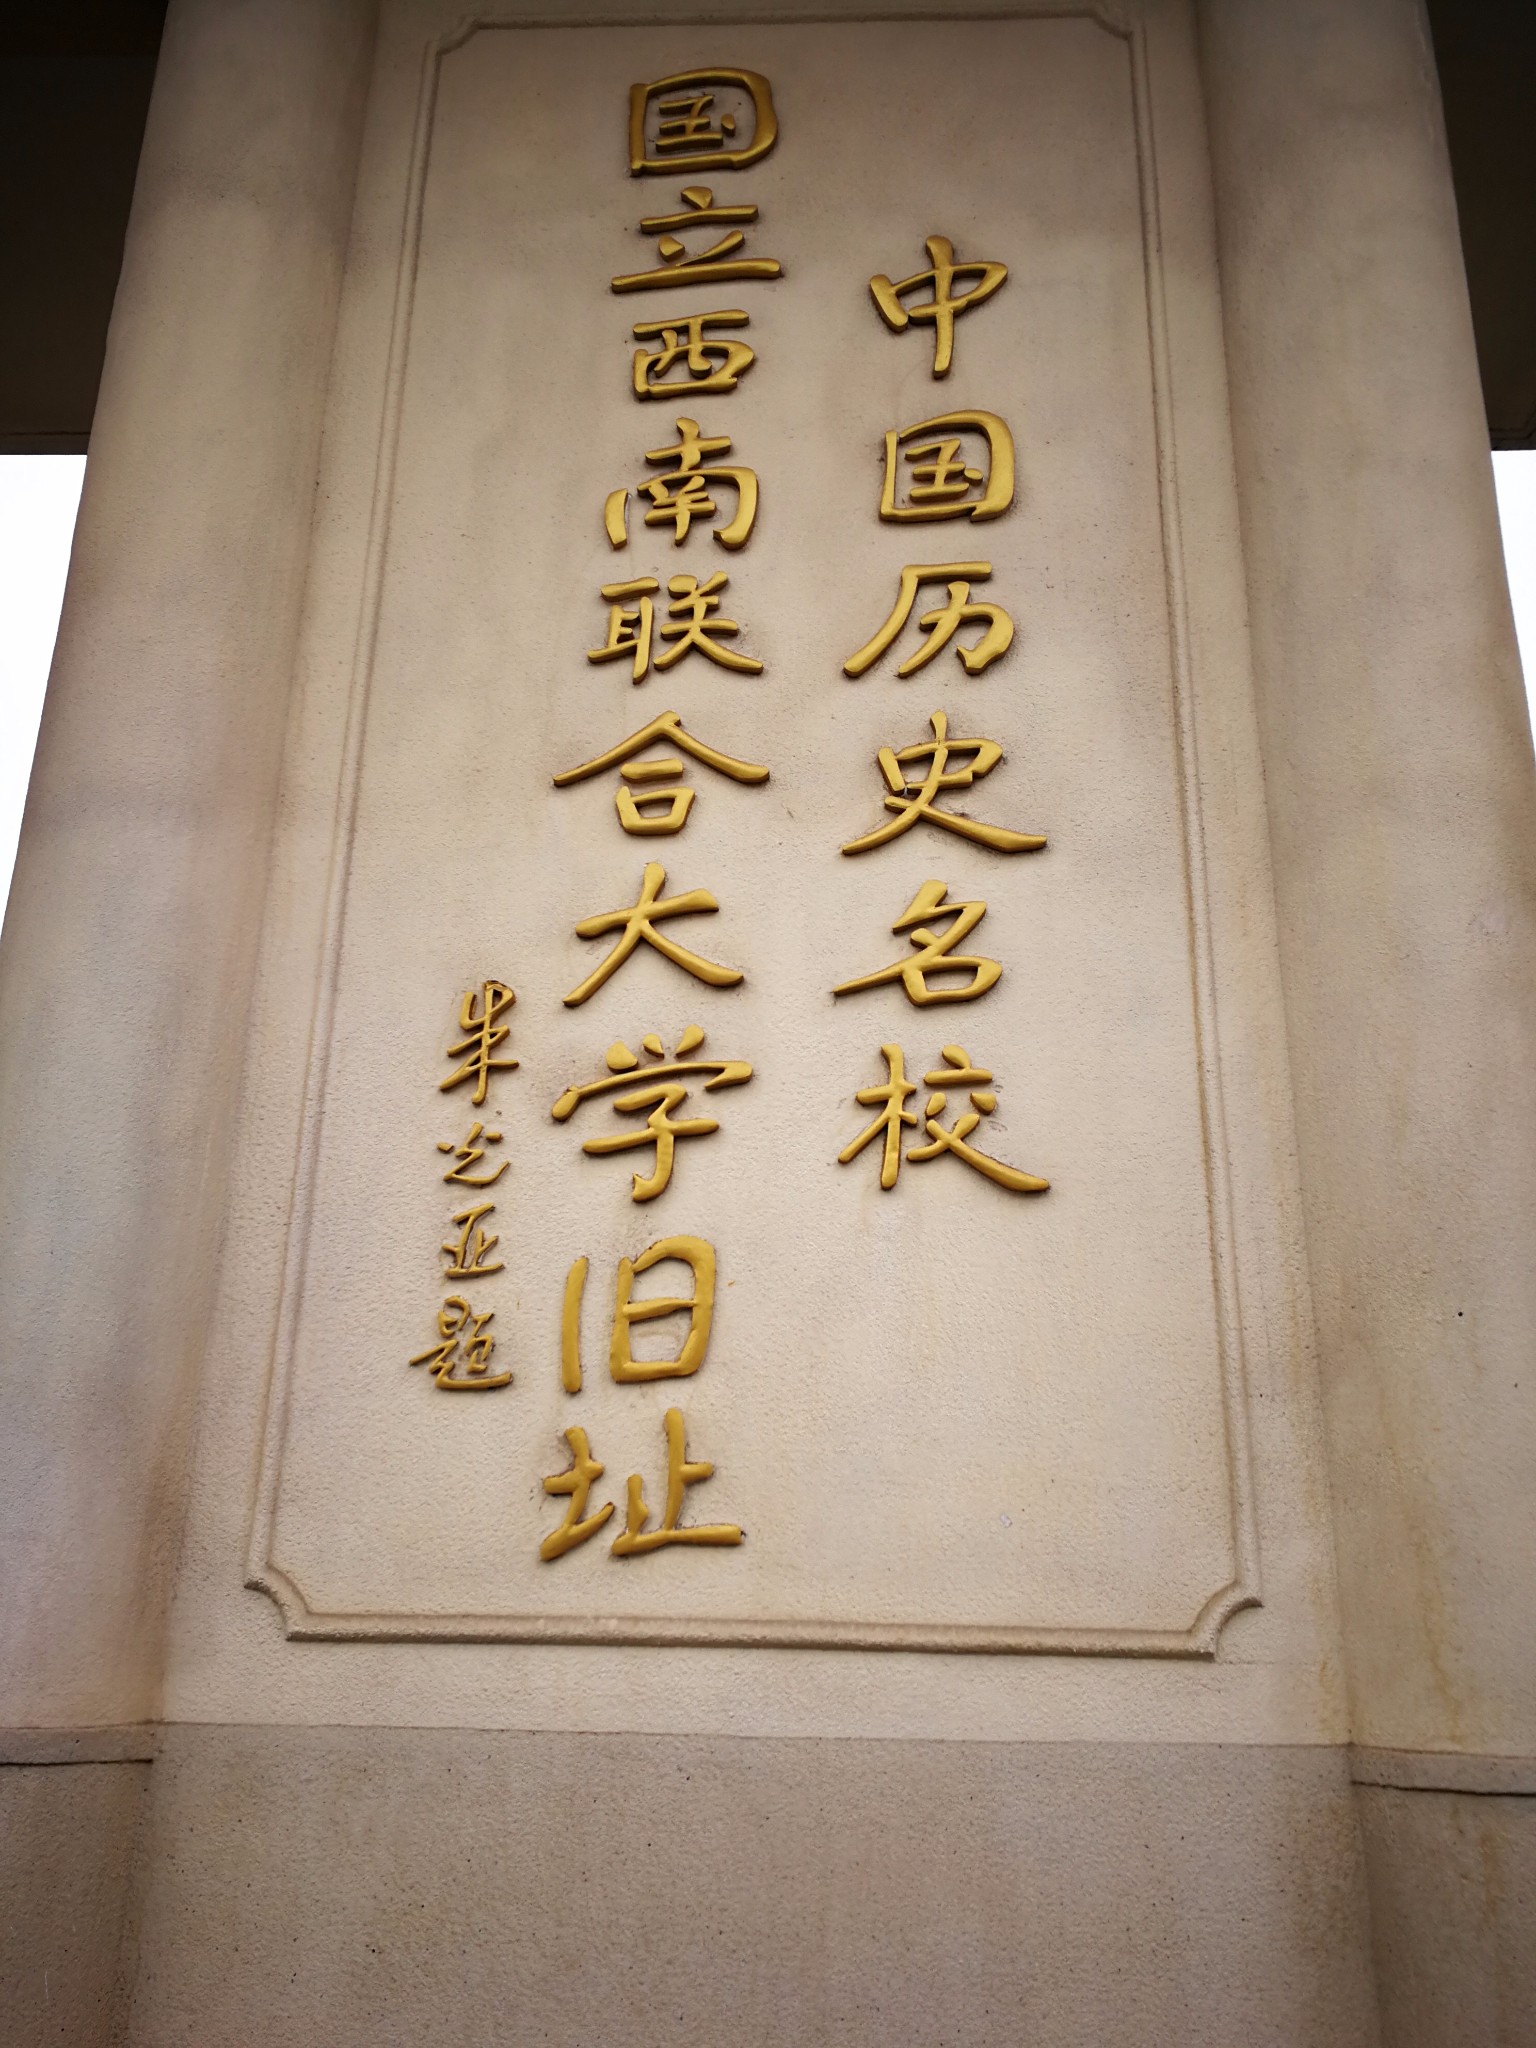 中国历史名校
国立西南联合大学旧址
朱光亚题